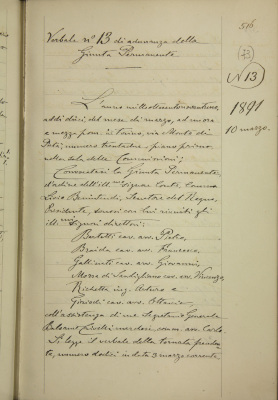 516
Verbale n° 13 di adunanza della
Giunta Permanente
(73)
(N 13)
1891
10 marzo.
L'anno milleottocentonovantuno,
addì dieci del mese di marzo, ad un'ora
e mezza pom. in Torino, via Monte di
Pietà, numero trentadue, piano primo
nella sala delle Commissioni;
Convocatasi la Giunta Permanente
d'ordine dell'ill.mo Signor Conte, Comm.
Livio Benintendi, Senatore del Regno,
Presidente, sonosi con lui riuniti gli
ill.mi Signori direttori:
Bertetti cav. avv. Paolo,
Braida cav. avv. Francesco,
Gattinetti cav. avv. Giovanni,
cav. avv. Vincenzo,
ing. Arturo e
cav. avv. Ottavio,
coll'assistenza di me Segretario Generale
comm. avv. Carlo.
Si legge il verbale della tornata preceden-
te, numero dodici in data 3 marzo corrente